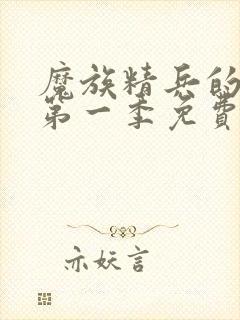 魔族精兵的
第一季免費
亦妖言